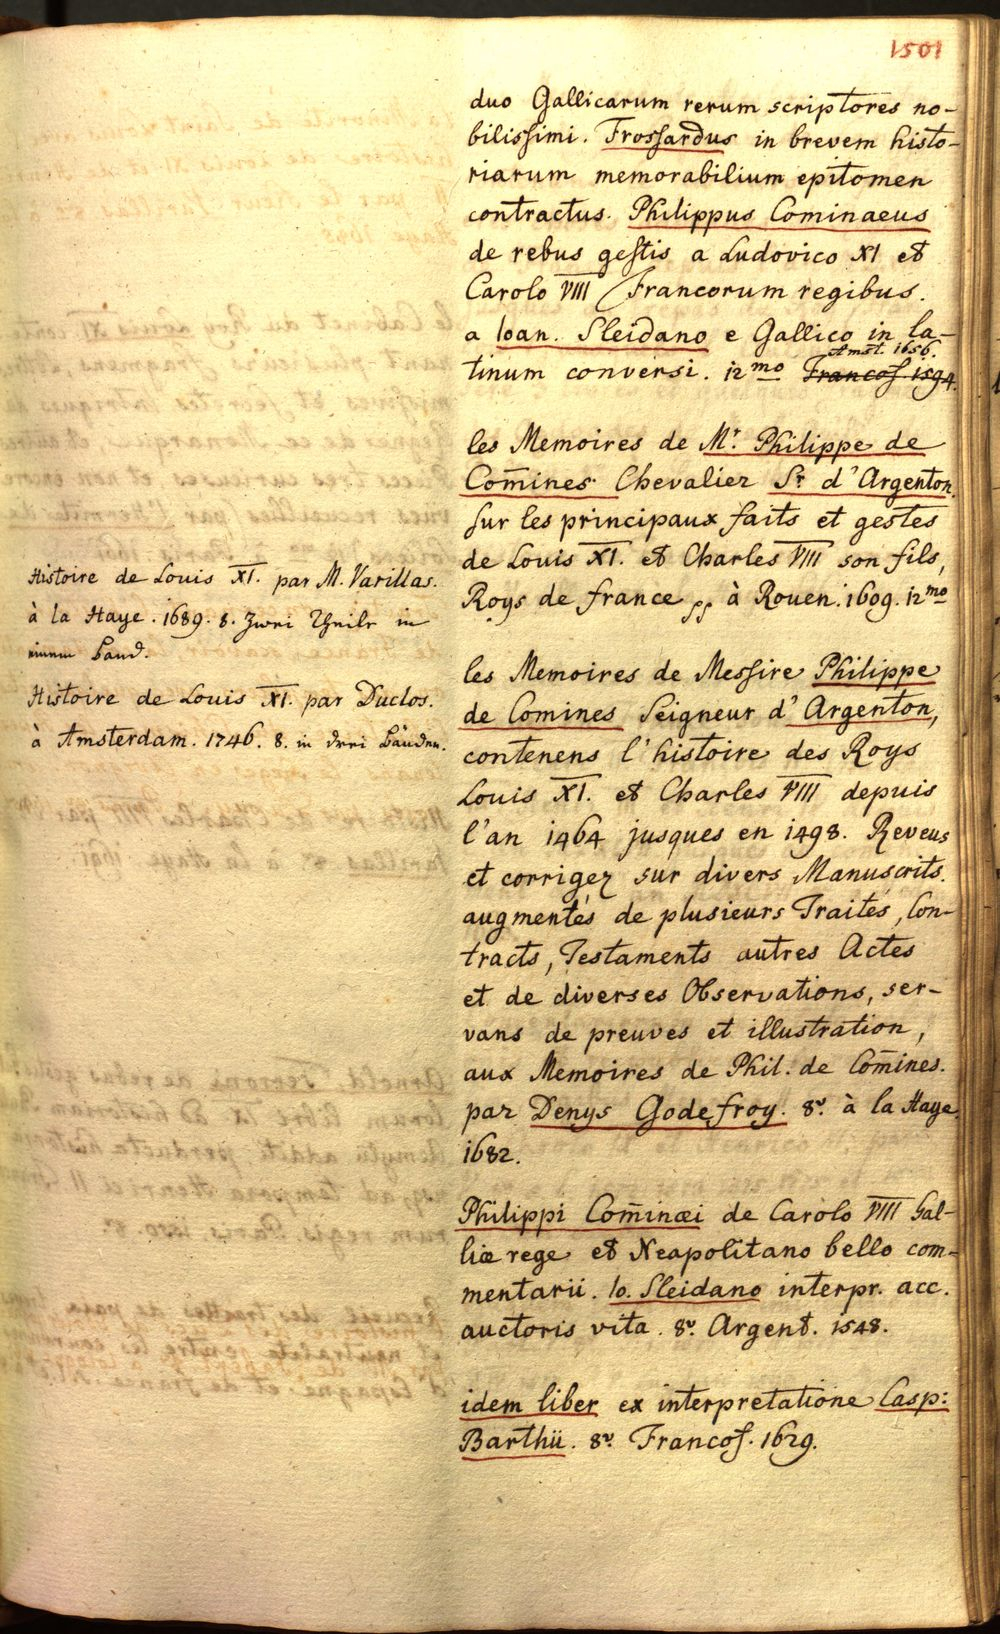 1501
duo Gallicarum rerum scriptores no-
bilissimi. Frossardus in brevem histo-
riarum memorabilium epitomen
contractus. Philippus Cominaeus
de rebus gestis a Ludovico XI et
Carolo VIII Francorum regibus.
a Ioan. Sleidano e Gallico in la-
Amst. 1656.
tinum conversi. 12mo Francof. 1594.
les Memoires de Mr. Philippe de
Com̄ines. Chevalier Sr. d'Argenton.
sur les principaux faits et gestes
de Louis XI. et Charles VIII son fils,
Roys de france pp à Rouen. 1609. 12mo
les Memoires de Messire Philippe
de Comines Seigneur d'Argenton,
contenens l'histoire des Roys
Louis XI. et Charles VIII depuis
l'an 1464 jusques en 1498. Reveus
et corrigez sur divers Manuscrits.
augmentés de plusieurs Traités, Con-
tracts, Testaments autres Actes
et de diverses Observations, ser-
vans de preuves et illustration,
aux Memoires de Phil. de Com̄ines.
par Denys Godefroy. 8v. à la Haye.
1682.
Philippi Com̄inæi de Carolo VIII Gal-
liæ rege et Neapolitano bello com-
mentarii. Io. Sleidano interpr. acc.
auctoris vita. 8v. Argent. 1548.
idem liber ex interpretatione Casp:
Barthii. 8v. Francof. 1629.
Histoire de Louis XI. par M. Varillas.
à la Haye. 1689. 8. Zwei Theile in
einem Band.
Histoire de Louis XI. par Duclos.
à Amsterdam. 1746. 8. in drei Bänden.